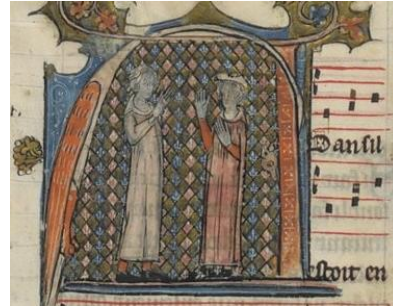 Dansil
estoit en